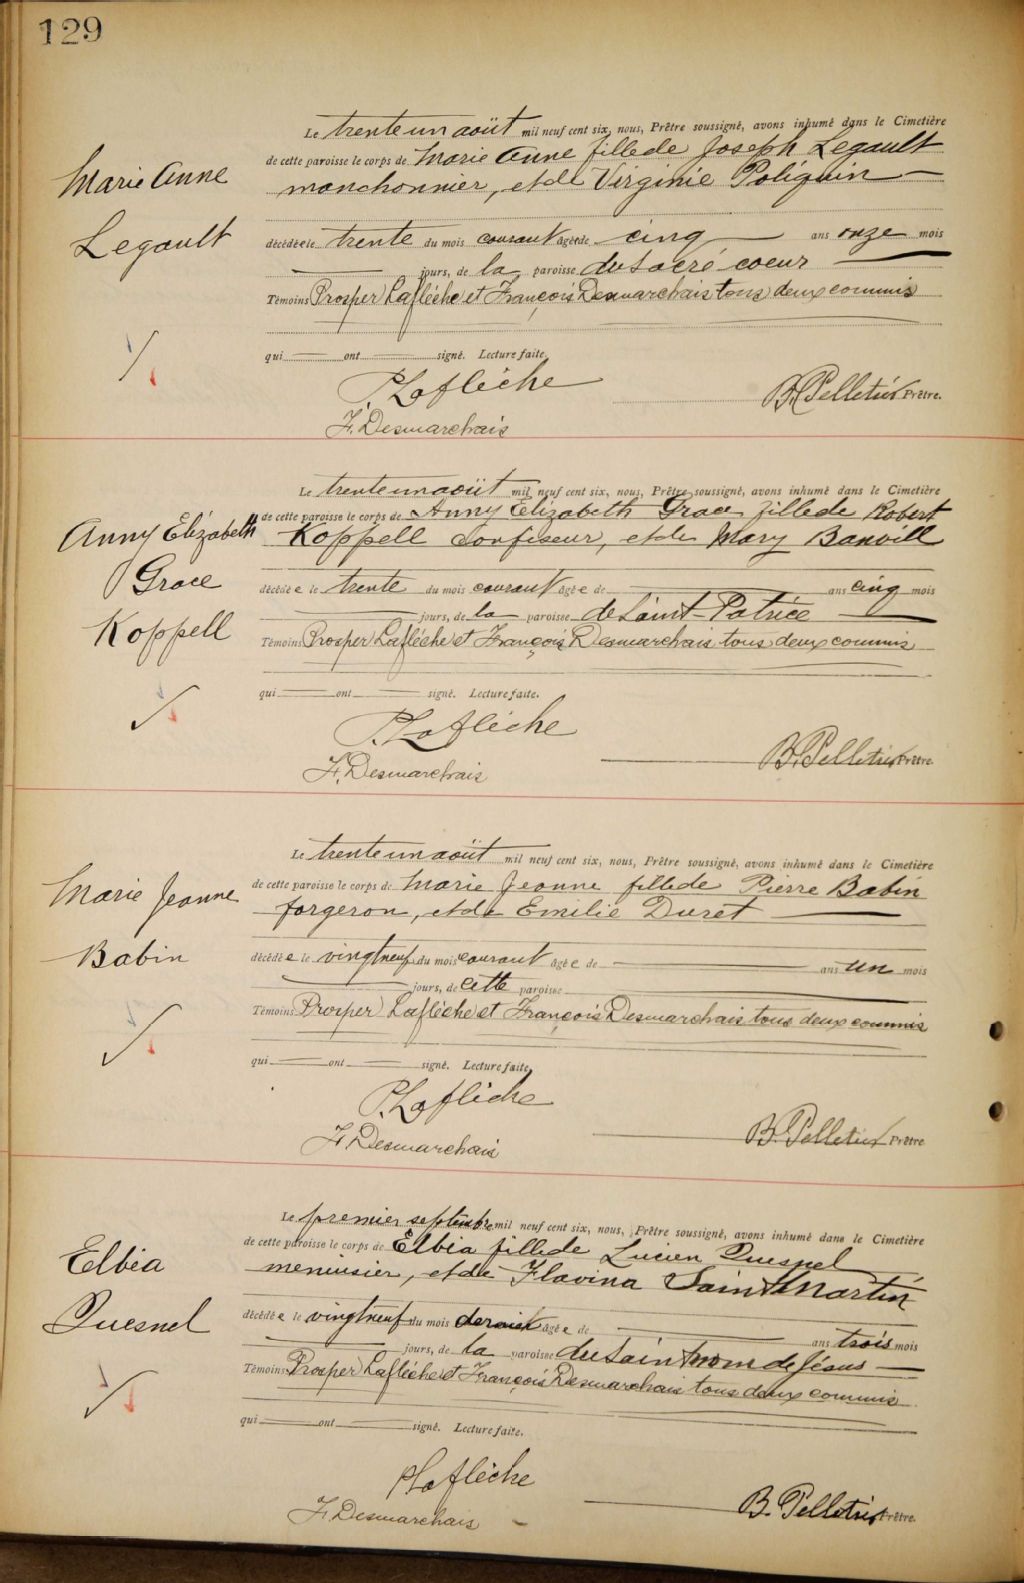 129
Le trente un août mil neuf cent six, nous, Prêtre soussigné, avons inhumé dans le Cimetière
de cette paroisse le corps de Marie Anne fille de Joseph Legault
Marie Anne
manchonnier, et de Virginie Poliquin
Legault
décédée le trente du mois courant âgée de cinq ans onze mois
jours, de la paroisse du Sacré coeur
Témoins Prosper Laflèche et François Desmarchais tous deux commis
qui ont signé. Lecture faite.
P. Laflèche
B. Pelletier Prêtre.
F. Desmarchais
Le trente un août mil neuf cent six, nous, Prêtre soussigné, avons inhumé dans le Cimetière
de cette paroisse le corps de Anny Elizabeth Grace fille de Robert
Anny Elizabeth
Koppell confiseur, et de Mary Banvill
Grace
décédée le trente du mois courant âgée de ans cinq mois
jours, de la paroisse de Saint-Patrice
Koppell
Témoins Prosper Laflèche et François Desmarchais tous deux commis
qui ont signé. Lecture faite.
P. Laflèche
B. Pelletier Prêtre.
F. Desmarchais
Le trente un août mil neuf cent six, nous, Prêtre soussigné, avons inhumé dans le Cimetière
de cette paroisse le corps de Marie Jeanne fille de Pierre Babin
Marie Jeanne
forgeron, et de Emilie Duret
Babin
décédée le vingt neuf du mois courant âgée de ans un mois
jours, de cette paroisse
Témoins Prosper Laflèche et François Desmarchais tous deux commis
qui ont signé. Lecture faite.
P. Laflèche
B. Pelletier Prêtre
F. Desmarchais
Le premier septembre mil neuf cent six, nous, Prêtre soussigné, avons inhumé dans le Cimetière
de cette paroisse le corps de Elbia fille de Lucien Quesnel
Elbia
menuisier, et de Flavina Saint Martin
Quesnel
décédée le vingt neuf du mois dernier âgée de ans trois mois
jours, de la paroisse du Saint nom de Jésus
Témoins Prosper Laflèche et François Desmarchais tous deux commis
qui ont signé. Lecture faite.
P Laflèche
B. Pelletier Prêtre.
F. Desmarchais